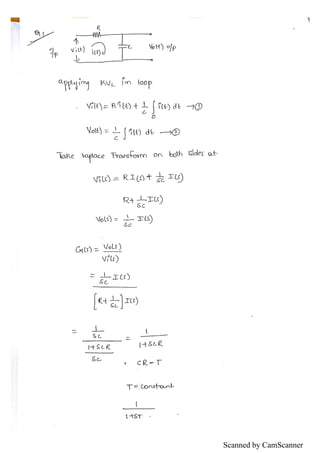 Q1
R
i/p Vi(t) i(t) C Vo(t) o/p
applying KVL in loop
Vi(t) = R i(t) + 1/C ∫0 i(t) dt → ①
Vo(t) = 1/C ∫ i(t) dt → ②
Take laplace Transform on both sides at
Vi(s) = R I(s) + 1/SC I(s)
R + 1/SC I(s)
Vo(s) = 1/SC I(s)
G(s) = Vo(s) / Vi(s)
= 1/SC I(s) / [R + 1/SC] I(s)
= 1/SC / (1+SCR)/SC = 1 / 1+SCR
, CR = T
T = constant
1 / 1+ST
Scanned by CamScanner